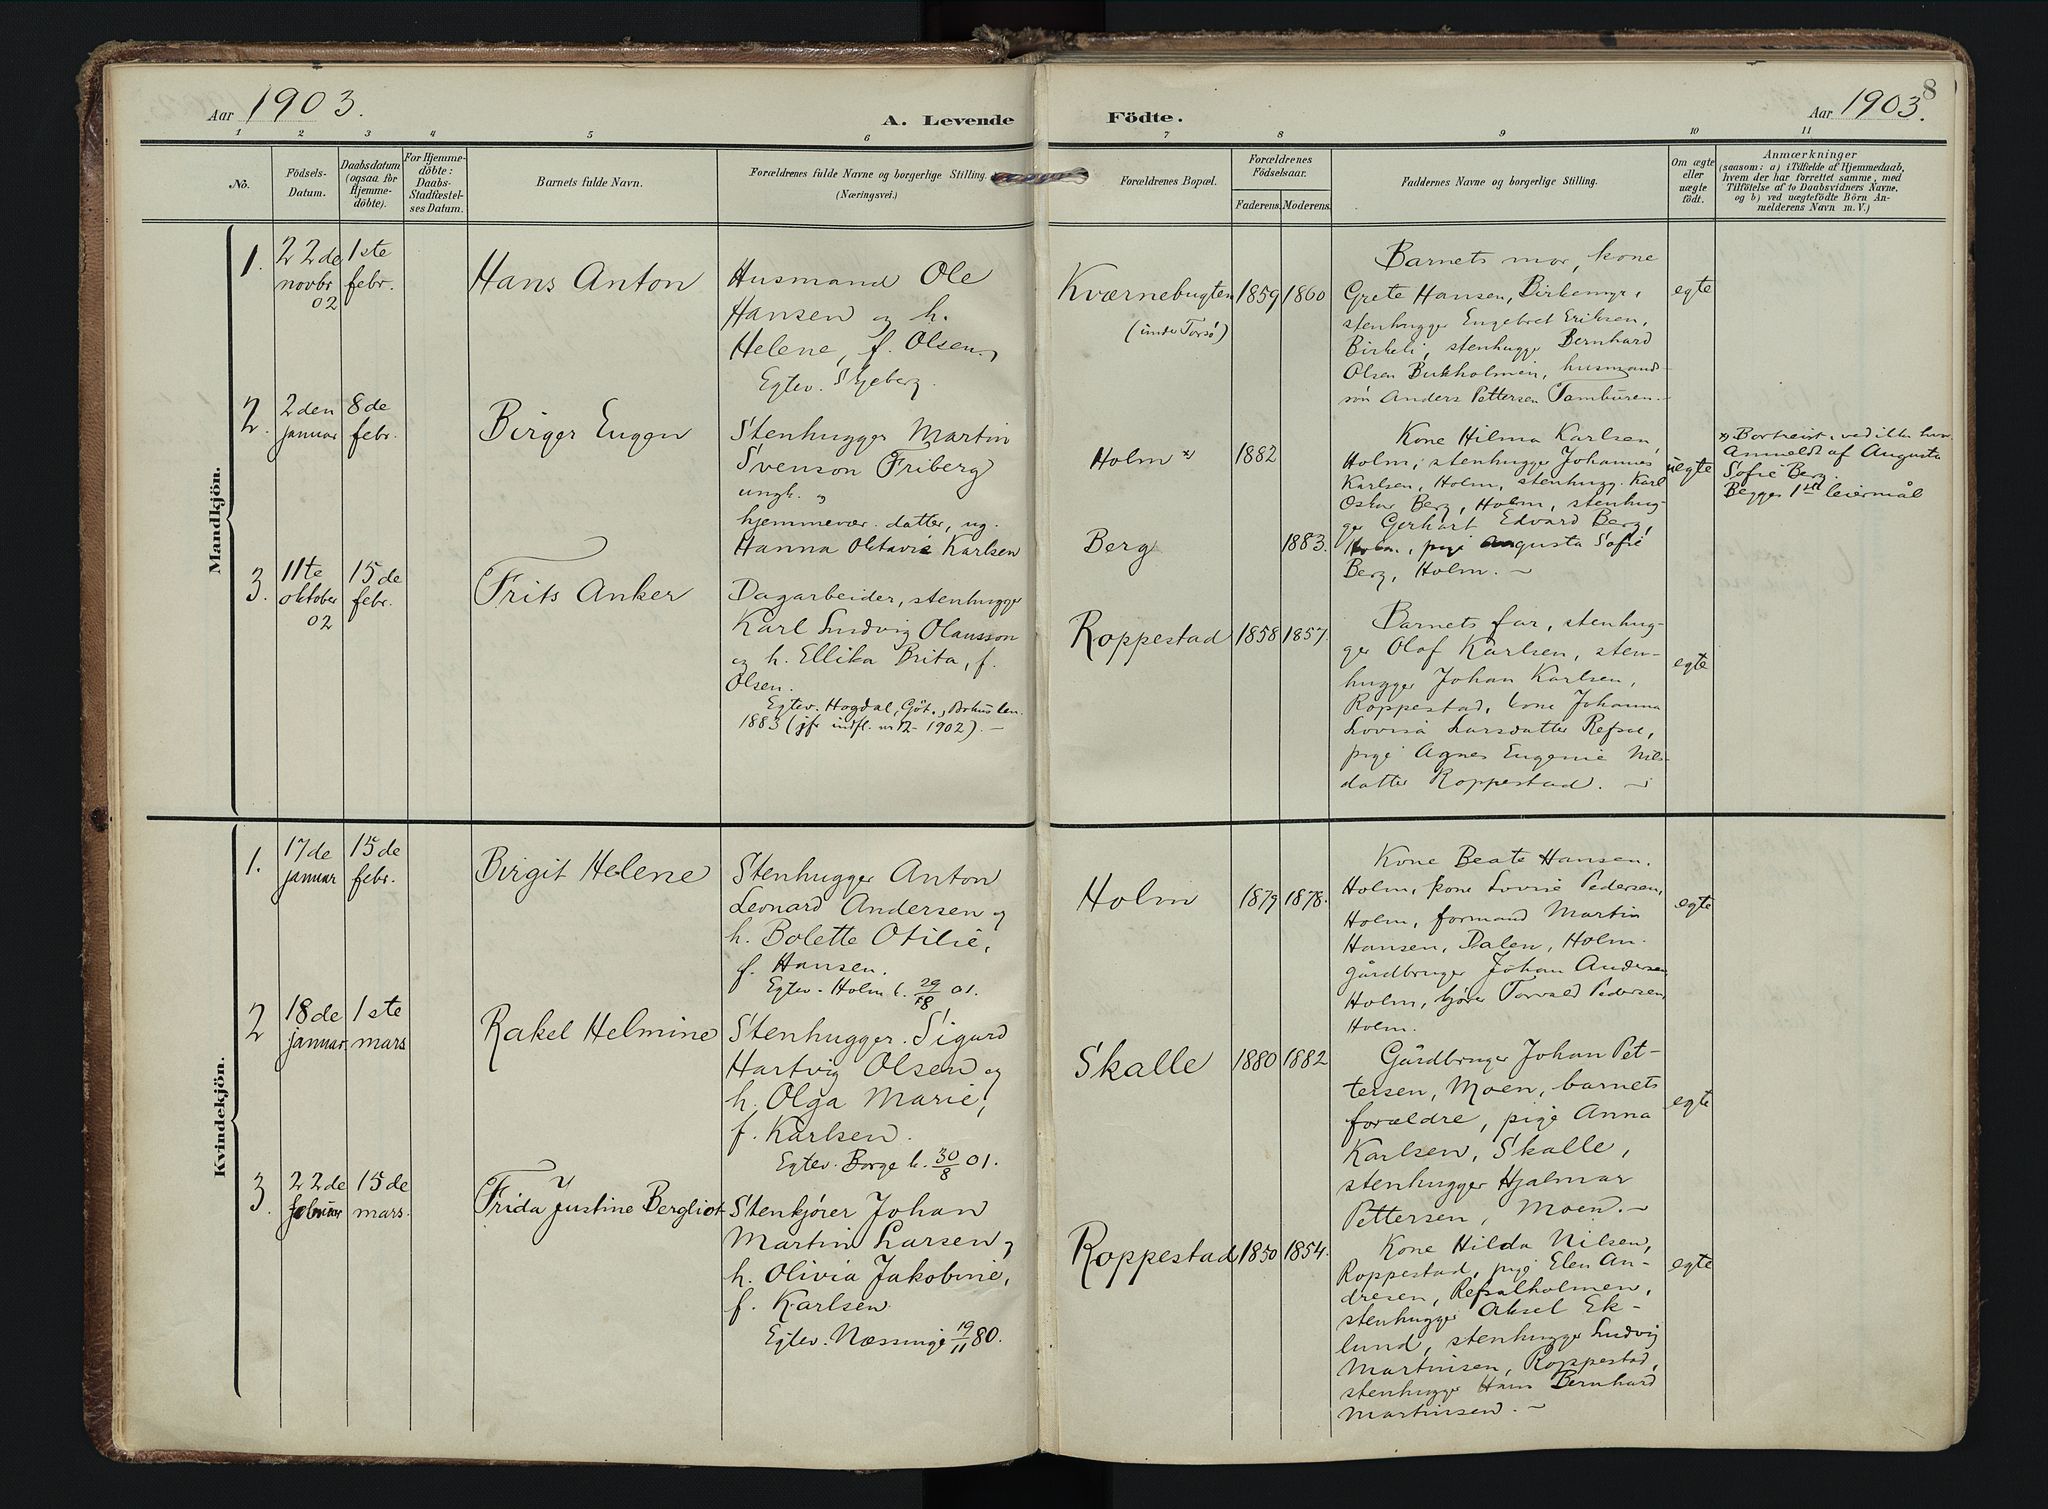 8
Aar 1903.
A. Levende Födte.
Aar 1903.
1 2 3 4 5 6 7 8 9 10 11
No.
Födsels-
Datum.
Daabsdatum
(ogsaa for
Hjemme-
döbte).
For Hjemme-
döbte:
Daabs-
Stadfæstel-
ses Datum.
Barnets fulde Navn.
Forældrenes fulde Navne og borgerlige Stilling.
(Næringsvei.)
Forældrenes Bopæl.
Forældrenes
Födselsaar.
Faderens.
Moderens.
Faddernes Navne og borgerlige Stilling.
Om ægte
eller
uægte
födt.
Anmærkninger
(saasom: a) i Tilfælde af Hjemmedaab,
hvem der har forrettet samme, med
Tilföielse af to Daabsvidners Navne.
og b) ved uægtefödte Börn An-
melderens Navn m. V.)
Mandkjön.
1.
22de
novbr
02
1ste
febr.
Hans Anton
Husmand Ole
Hansen og h.
Helene, f. Olsen.
Egtev. Skjeberg.
Kværnebugten
(under Torsø)
1859
1860
Barnets mor, kone
Grete Hansen, Birkemyr,
stenhugger Engebret Eriksen,
Birkeli, stenhugger Bernhard
Olsen Bukholmen, husmands-
søn Anders Pettersen Tamburen.
egte
2.
2den
januar
8de
febr.
Birger Eugen
Stenhugger Martin
Svenson Friberg
ungk. og
hjemmevær. datter, ug.
Hanna Oktavie Karlsen
Holm x)
Berg
1882
1883.
Kone Hilma Karlsen,
Holm, stenhugger Johannes
Karlsen, Holm, stenhugg. Karl
Oskar Berg, Holm, stenhug-
ger Gerhart Edvard Berg,
Holm, pige Augusta Sofie
Berg, Holm.
uegte
x) Bortreist,
Anmeldt af Augusta
Sofie Berg.
Begges 1ste leiermål
3.
11te
oktober
02
15de
febr.
Frits Anker
Dagarbeider, stenhugger
Karl Ludvig Olausson
og h. Ellika Brita, f.
Olsen.
Egtev. Hogdal, Göt., Bohus len.
1883 (jfr indfl. nr 12 - 1902).
Roppestad
1858
1857.
Barnets far, stenhug-
ger Olaf Karlsen, sten-
hugger Johan Karlsen,
Roppestad, kone Johanna
Lovisa Larsdatter Refsal,
pige Agnes Eugenie Nils-
datter Roppestad.
egte
Kvindekjön.
1.
17de
januar
15de
febr.
Birgit Helene
Stenhugger Anton
Leonard Andersen og
h. Bolette Otilie,
f. Hansen.
Egtev. Holm k. 29/18 01.
Holm
1879
1878.
Kone Beate Hansen.
Holm, kone Lovise Pedersen,
Holm, formand Martin
Hansen, Dalen, Holm.
gårdbruger Johan Andersen
Holm, kjører Torvald Pedersen,
Holm.
egte
2
18de
januar.
1ste
mars
Rakel Helmine
Stenhugger Sigurd
Hartvig Olsen og
h. Olga Marie,
f. Karlsen.
Egtev. Borge k. 30/8 01.
Skalle
1880
1882
Gårdbruger Johan Pet-
tersen, Moen, barnets
forældre, pige Anna
Karlsen, Skalle,
stenhugger Hjalmar
Pettersen, Moen.
egte
3.
22de
februar
15de
mars.
Frida Justine Bergliot
Stenkjører Johan
Martin Larsen og
h. Olivia Jakobine,
f. Karlsen.
Egtev. Næssinge 19/11 80.
Roppestad
1850
1854.
Kone Hilda Nilsen,
Roppestad, pige Elen An-
dresen, Refsalholmen,
stenhugger Aksel Ek-
lund, stenhugger Ludvig
Martinsen, Roppestad,
stenhugger Hans Bernhard
Martinsen.
egte